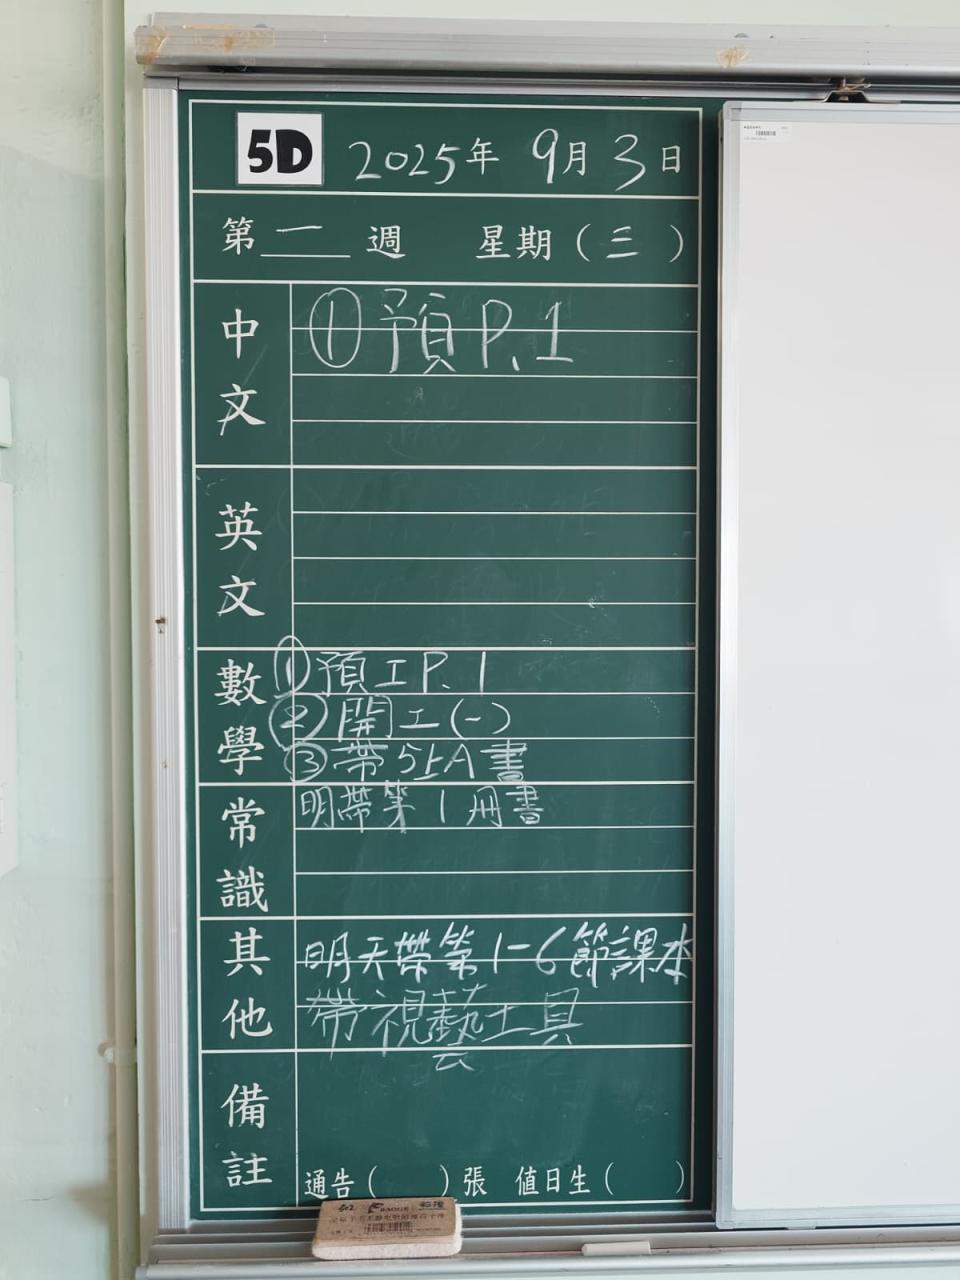 5D 2025年 9月 3日
第 一 週 星期 ( 三 )
中文
① 預 P.1
英文
數學
① 預工 P.1
② 開工(一)
③ 帶 5上A 書
常識
明帶第 1 冊書
其他
明天帶第 1-6 節課本
帶視藝工具
備註
通告 ( ) 張 值日生 ( )
502